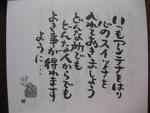 いつもアンテナをはり
心のスイッチを
入れておきましょう
どんな所でも
どんな人からでも
よき事が得れます
ように…